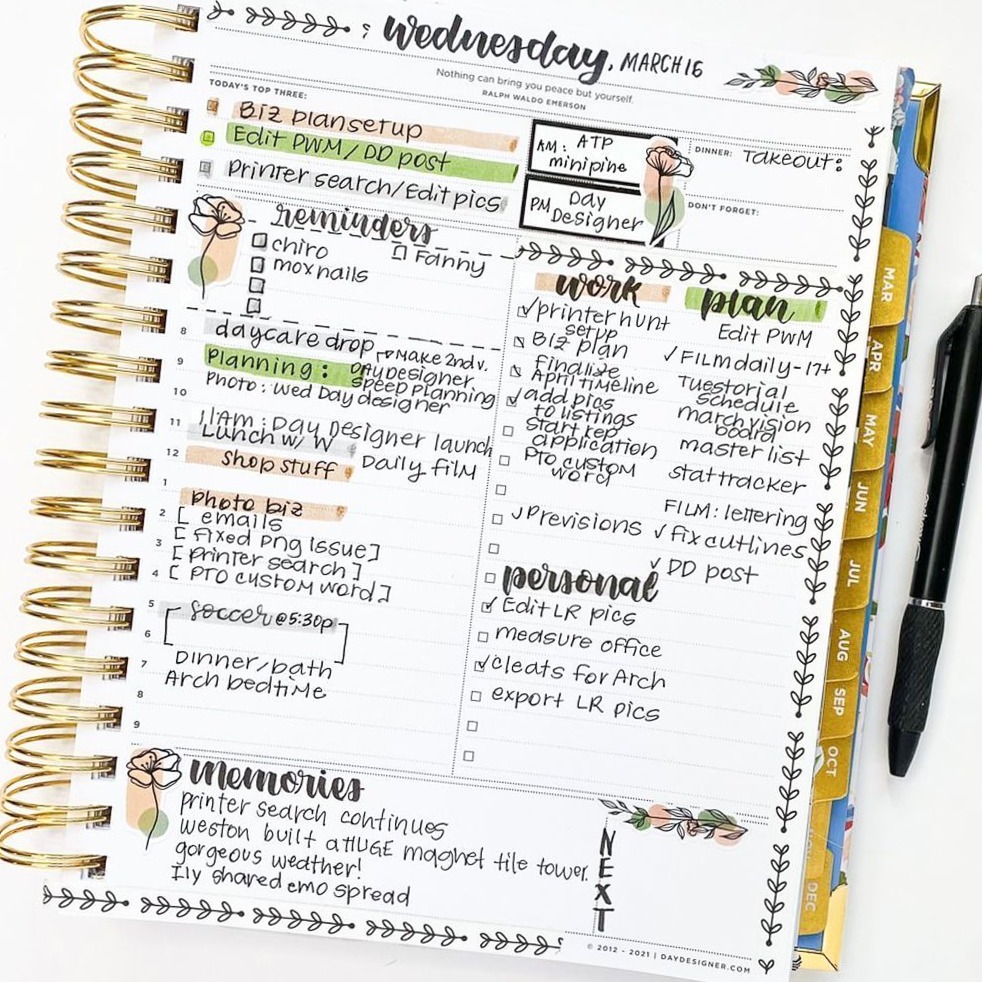 wednesday, MARCH 16
Nothing can bring you peace but yourself.
RALPH WALDO EMERSON
TODAY'S TOP THREE:
Biz plan setup
Edit PWM / DD post
Printer search/Edit pics
AM: ATP
minipine
PM Day
Designer
DINNER: Takeout:
DON'T FORGET:
reminders
chiro
Fanny
mox nails
8 daycare drop
Make 2nd v.
9 Planning: Day Designer
speed planning
10 Photo: Wed Day designer
11 11AM: Day Designer launch
Lunch w/ W
12 shop stuff Daily film
1
Photo biz
2 [ emails
3 [ Fixed Png Issue]
[ Printer search ]
4 [ PTO custom word]
5 soccer @5:30p
6
7 Dinner/bath
Arch bedtime
8
9
work
✓ printer hunt
setup
Biz plan
finalize
April timeline
✓ add pics
to listings
Start rep
application
PTO custom
word
✓ Previsions
plan
Edit PWM
✓ FILM daily-17+
Tuestorial
schedule
march vision
board
master list
stattracker
FILM: lettering
✓ fix cutlines
✓ DD post
personal
✓ Edit LR pics
measure office
✓ cleats for Arch
export LR pics
memories
printer search continues
weston built a HUGE magnet tile tower.
gorgeous weather!
Ily shared emo spread
NEXT
© 2012 - 2021 | DAYDESIGNER.COM
MAR
APR
MAY
JUN
JUL
AUG
SEP
OCT
DEC